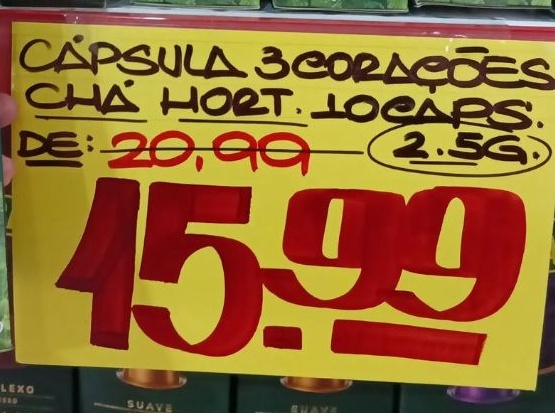 CÁPSULA 3 CORAÇÕES
CHÁ HORT. 10CAPS.
DE: 20,99 2.5G.
15.99
LEXO
SUAVE
SUAVE